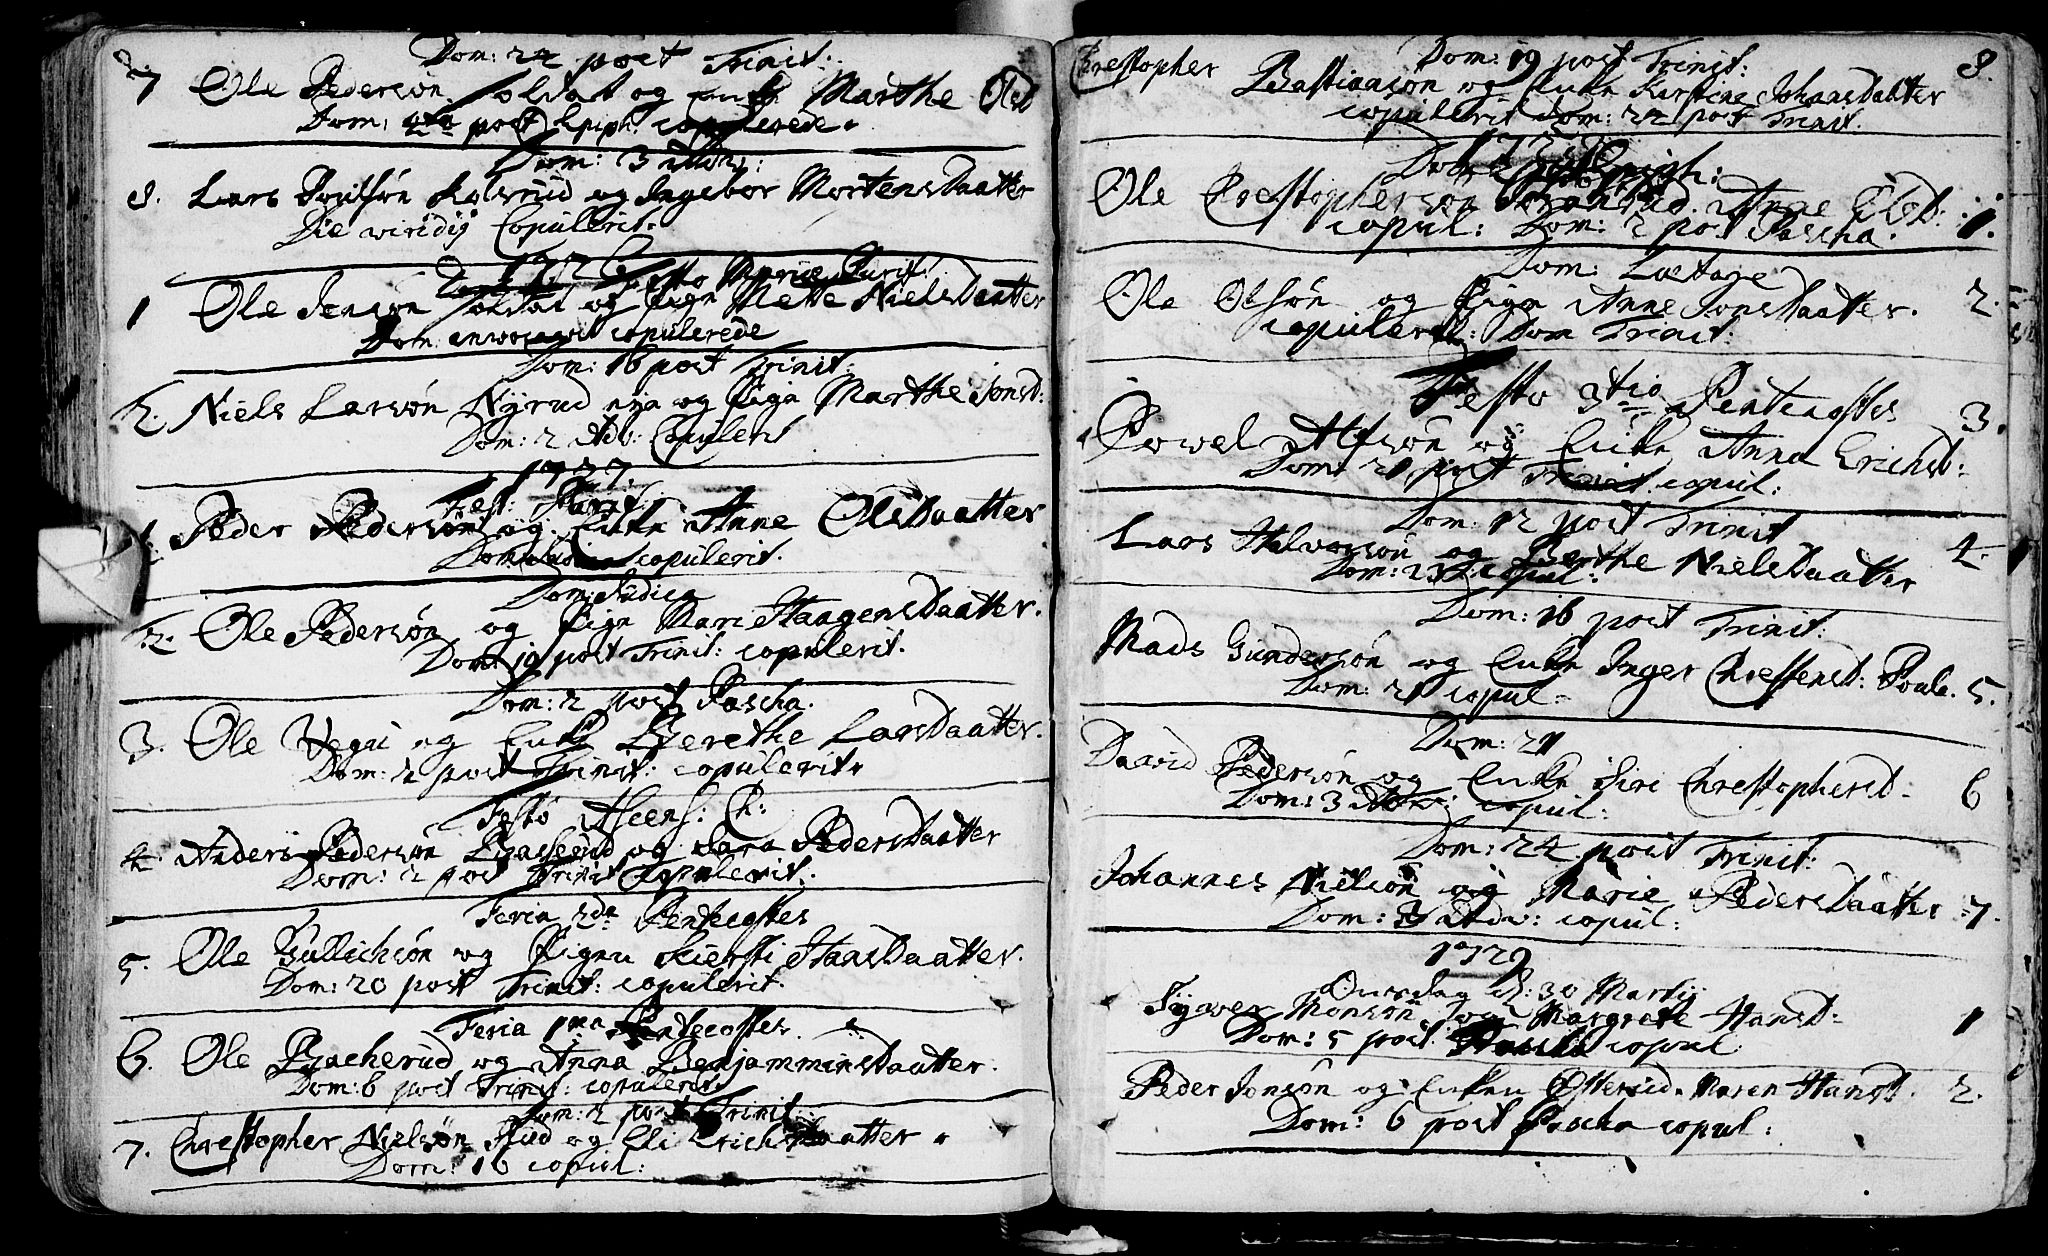 Dom: 22 post Trinit:
7 Ole Pedersøn Soldat og Enke Marthe Olsd
Dom: 4ta post Epiph: copulerede.
Dom: 3 Adv:
8. Lars Poulsøn Kolsrud og Ingebor Mortensdaatter
Die viridij Copulerit.
1726
Festo Mariæ Purif:
1 Ole Jensøn Soldat og Pign Mette Nielsdaatter
Dom: copulerede
Dom: 16 post Trinit:
2. Niels Larsøn Nyrud og Pign Marthe Jonsd:
Dom: 2 Adv: Copulerit
1727
Fest: Purif:
1. Peder Pedersøn og Enke Anne Olsdaatter
Dom: copulerit.
Dom: Judica
2. Ole Pedersøn og Pign Mari Haagensdaatter.
Dom: 19 post Trinit: copulerit.
Dom: 2 post Pascha.
3. Ole og Enke Berethe Larsdaatter.
Dom: 2 post Trinit: copulerit
Festo Ascens: Ch:
4. Anders Pedersøn Basserud og Sara Pedersdaatter
Dom: 2 post Trinit Copulerit.
Feria 2da Pentecostes
5. Ole Gullichsøn og Pigen Kiersti Hansdaatter.
Dom: 20 post Trinit: copulerit.
Feria Pentecostes.
6. Ole Bacherud og Anna Benjaminsdaatter.
Dom: 6 post Trinit: copulerit
Dom: 2 post Trinit:
7. Chrestopher Nielsøn og Eli Erichsdaatter.
Dom: 16 copul:
8.
Dom: 19 post Trinit:
Chrestopher Bastiansøn og Enke Kirstine Johansdaatter
copulerit Dom: 22 post Trinit.
1728
Ole Chrestophersøn Anne Olsd: 1.
copul: Dom: 2 post Pascha.
Dom: Lætare
Ole Olsøn og Pign Anne Jonsdaatter. 2.
copulerit: Dom Trinit:
Festo 3tio Pentecostes
Povel Alfsøn og Enke Anna Erichsd: 3.
Dom: 21 post Trinit. copul:
Dom: 12 post Trinit
Lars Halvorsøn og Berthe Nielsdaatter 4.
Dom: 23 copul:
Dom: 16 post Trinit:
Mads Gundersøn og Enke Inger Chrestensd: 5.
Dom: 21 copul:
Dom: 21
David Pedersøn og Enke Siri Chrestophersd: 6
Dom: 3 Adv: copul:
Dom: 24 post Trinit:
Johannes Nielsøn og Marie Pedersdaatter 7.
Dom: 3 Adv: copul:
1729
Onsdag d: 30 Martij
Syver Monsøn og Margrete Hansd: 1
Dom: 5 post Pascha copul:
Peder Jonsøn og Enken Østerud. Maren Hansd. 2.
Dom: 6 post Pascha copul: